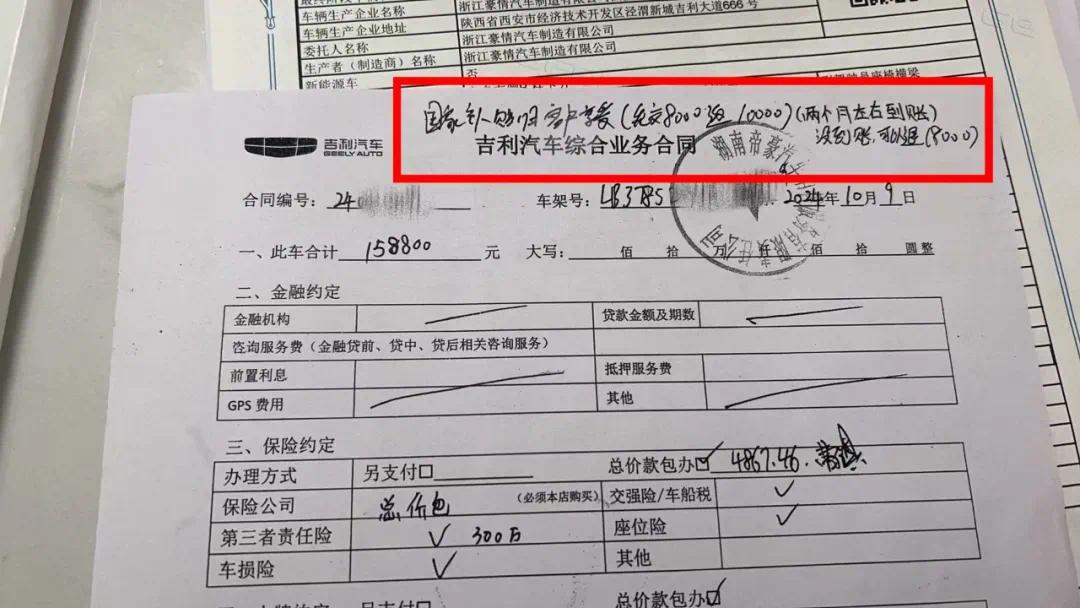 车辆生产企业名称 浙江豪情汽车制造有限公司
车辆生产企业地址 陕西省西安市经济技术开发区泾渭新城吉利大道666号
委托人名称 浙江豪情汽车制造有限公司
生产者（制造商）名称 浙江豪情汽车制造有限公司
新能源车 否
国家补贴归客户享受(先交8000返10000)(两个月左右到账)
没到账,可退(8000)
吉利汽车
GEELY AUTO
吉利汽车综合业务合同
合同编号： 24 车架号： LB37852 2024年10月9日
一、此车合计 158800 元 大写： 佰 拾 万 仟 佰 拾 圆整
二、金融约定
金融机构 贷款金额及期数
咨询服务费（金融贷前、贷中、贷后相关咨询服务）
前置利息 抵押服务费
GPS 费用 其他
三、保险约定
办理方式 另支付□ 总价款包办☑ 4867.46.
保险公司 总价包 （必须本店购买） 交强险/车船税 ✓
第三者责任险 ✓ 300万 座位险 ✓
车损险 ✓ 其他
另支付□ 总价款包办☑